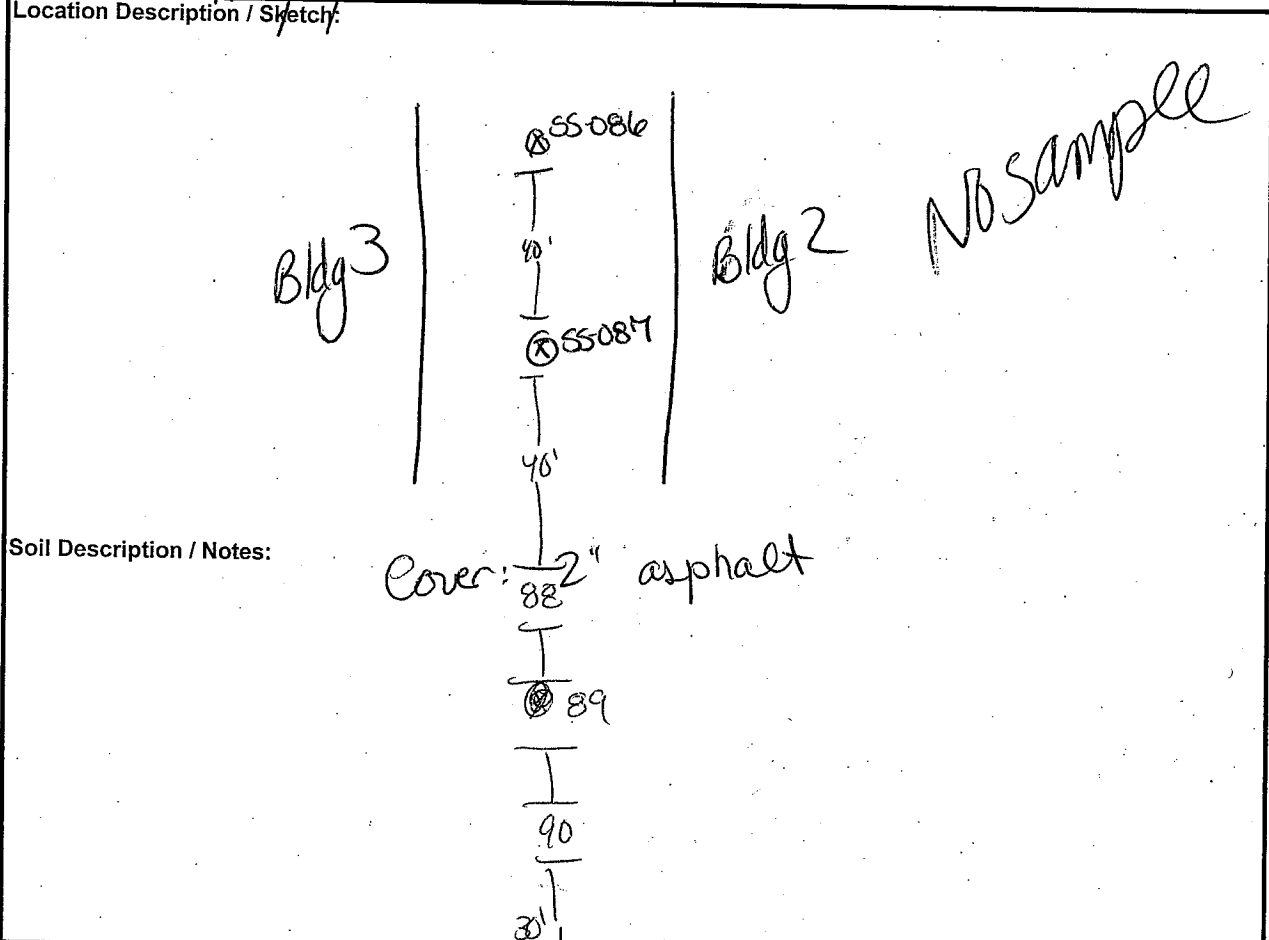 Location Description / Sketch:
SS-086
No sample
Bldg 3
40'
Bldg 2
SS-087
40'
Soil Description / Notes:
Cover: 2" asphalt
88
89
90
30'